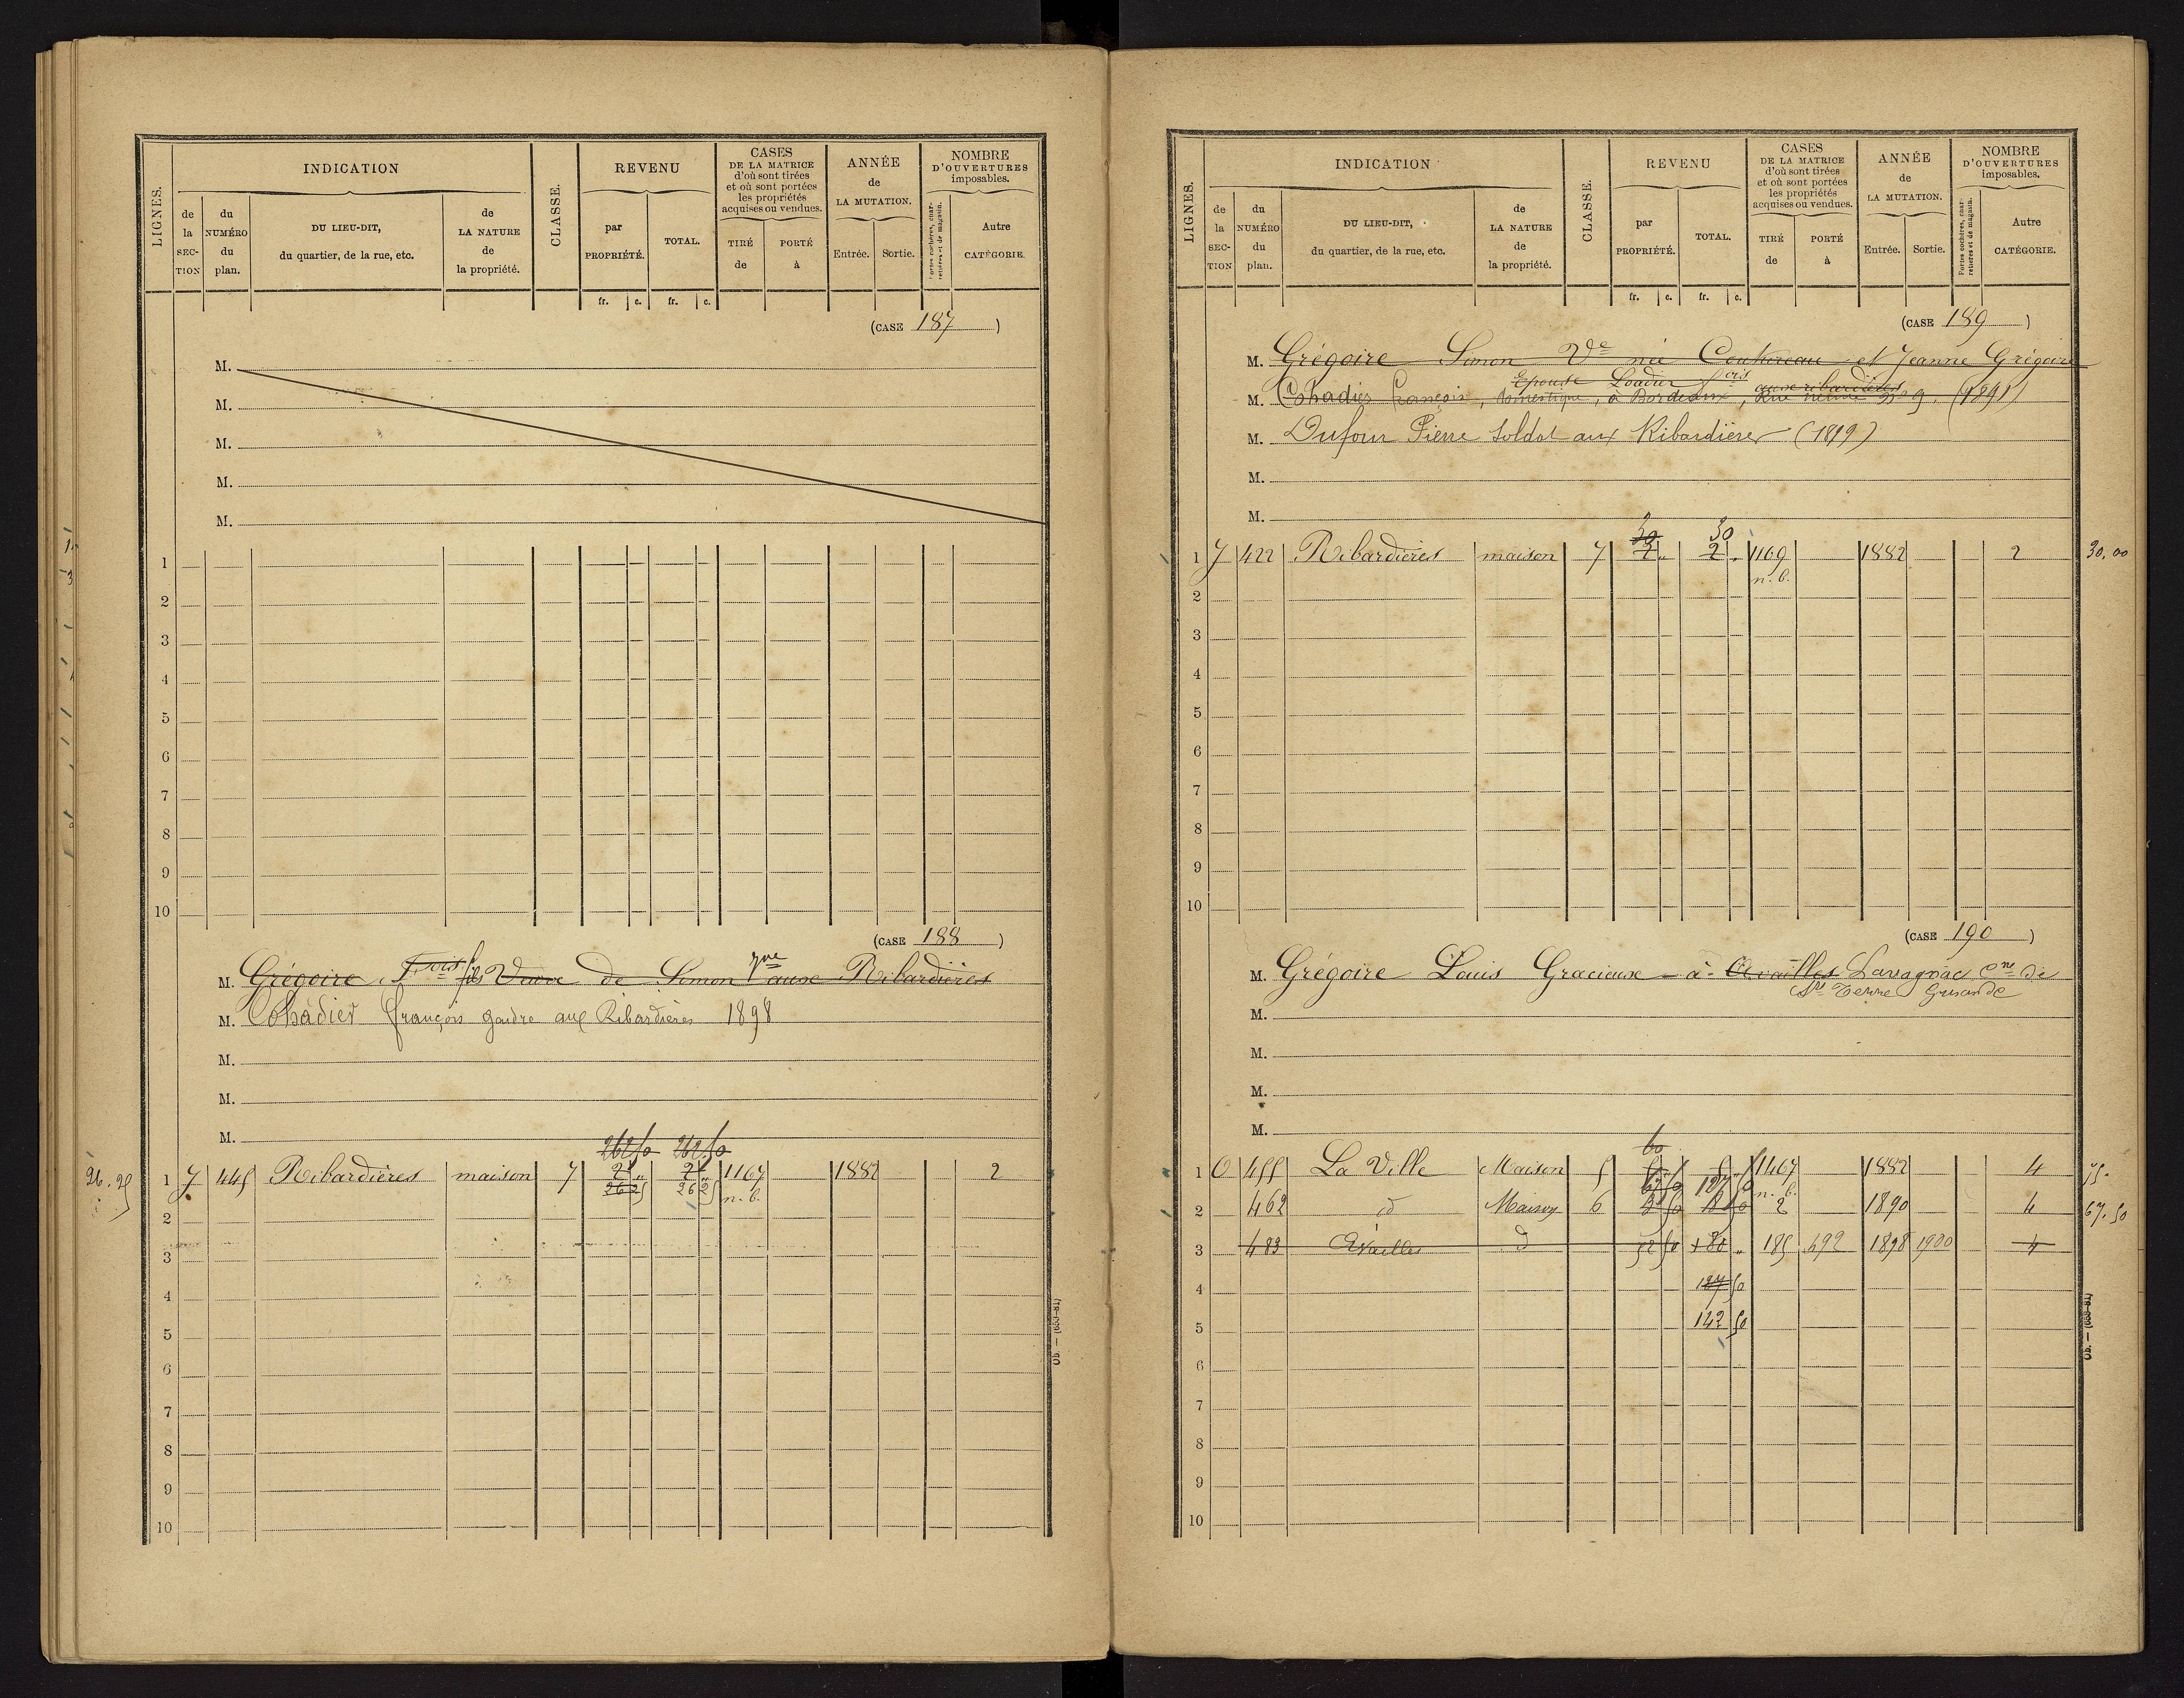 LIGNES.
INDICATION
de la SECTION
du NUMÉRO du plan.
DU LIEU-DIT,
du quartier, de la rue, etc.
de LA NATURE de la propriété.
CLASSE.
REVENU
par PROPRIÉTÉ.
TOTAL.
fr. c. fr. c.
CASES
DE LA MATRICE
d'où sont tirées
et où sont portées
les propriétés
acquises ou vendues.
TIRÉ de
PORTÉ à
ANNÉE
de
LA MUTATION.
Entrée. Sortie.
NOMBRE
D'OUVERTURES
imposables.
Portes cochères, charretières et de magasin.
Autre
CATÉGORIE.
(CASE 187)
M.
M.
M.
M.
M.
1
2
3
4
5
6
7
8
9
10
(CASE 188)
M. Grégoire Fois fils Veuve de Simon aux Ribardières
M. Cohadier François gendre aux Ribardières 1898
M.
M.
M.
262 50 262 50
26.25 1 7 445 Ribardières maison 7 2 " 2 " 1167 1882 2
26 25 26 25 n.b.
2
3
4
5
6
7
8
9
10
Ob. — (683-81)
LIGNES.
INDICATION
de la SECTION
du NUMÉRO du plan.
DU LIEU-DIT,
du quartier, de la rue, etc.
de LA NATURE de la propriété.
CLASSE.
REVENU
par PROPRIÉTÉ.
TOTAL.
fr. c. fr. c.
CASES
DE LA MATRICE
d'où sont tirées
et où sont portées
les propriétés
acquises ou vendues.
TIRÉ de
PORTÉ à
ANNÉE
de
LA MUTATION.
Entrée. Sortie.
NOMBRE
D'OUVERTURES
imposables.
Portes cochères, charretières et de magasin.
Autre
CATÉGORIE.
(CASE 189)
M. Grégoire Simon Ve née Coutureau et Jeanne Grégoire
Epouse Loadier fois aux ribardières
M. Cohadier François, domestique, à Bordeaux, Rue 9. (1891)
M. Dufour Pierre soldat aux Ribardières (1899)
M.
M.
30 30
1 7 422 Ribardières maison 7 2 " 2 " 1169 1882 2 30,00
n.b.
2
3
4
5
6
7
8
9
10
(CASE 190)
M. Grégoire Louis Gracieuse - à - Availles Lavagnac Cne de
Ste Terre Gironde
M.
M.
M.
M.
60
1 O 455 La Ville Maison 5 1467 1882 4 75.
127 50 n.b.
2 462 id Maison 6 2 1890 4 67.50
3 483 Availles d 52 50 180 " 185 492 1898 1900 4
4 127 50
5 142 50
6
7
8
9
10
Ob. — (683-81)